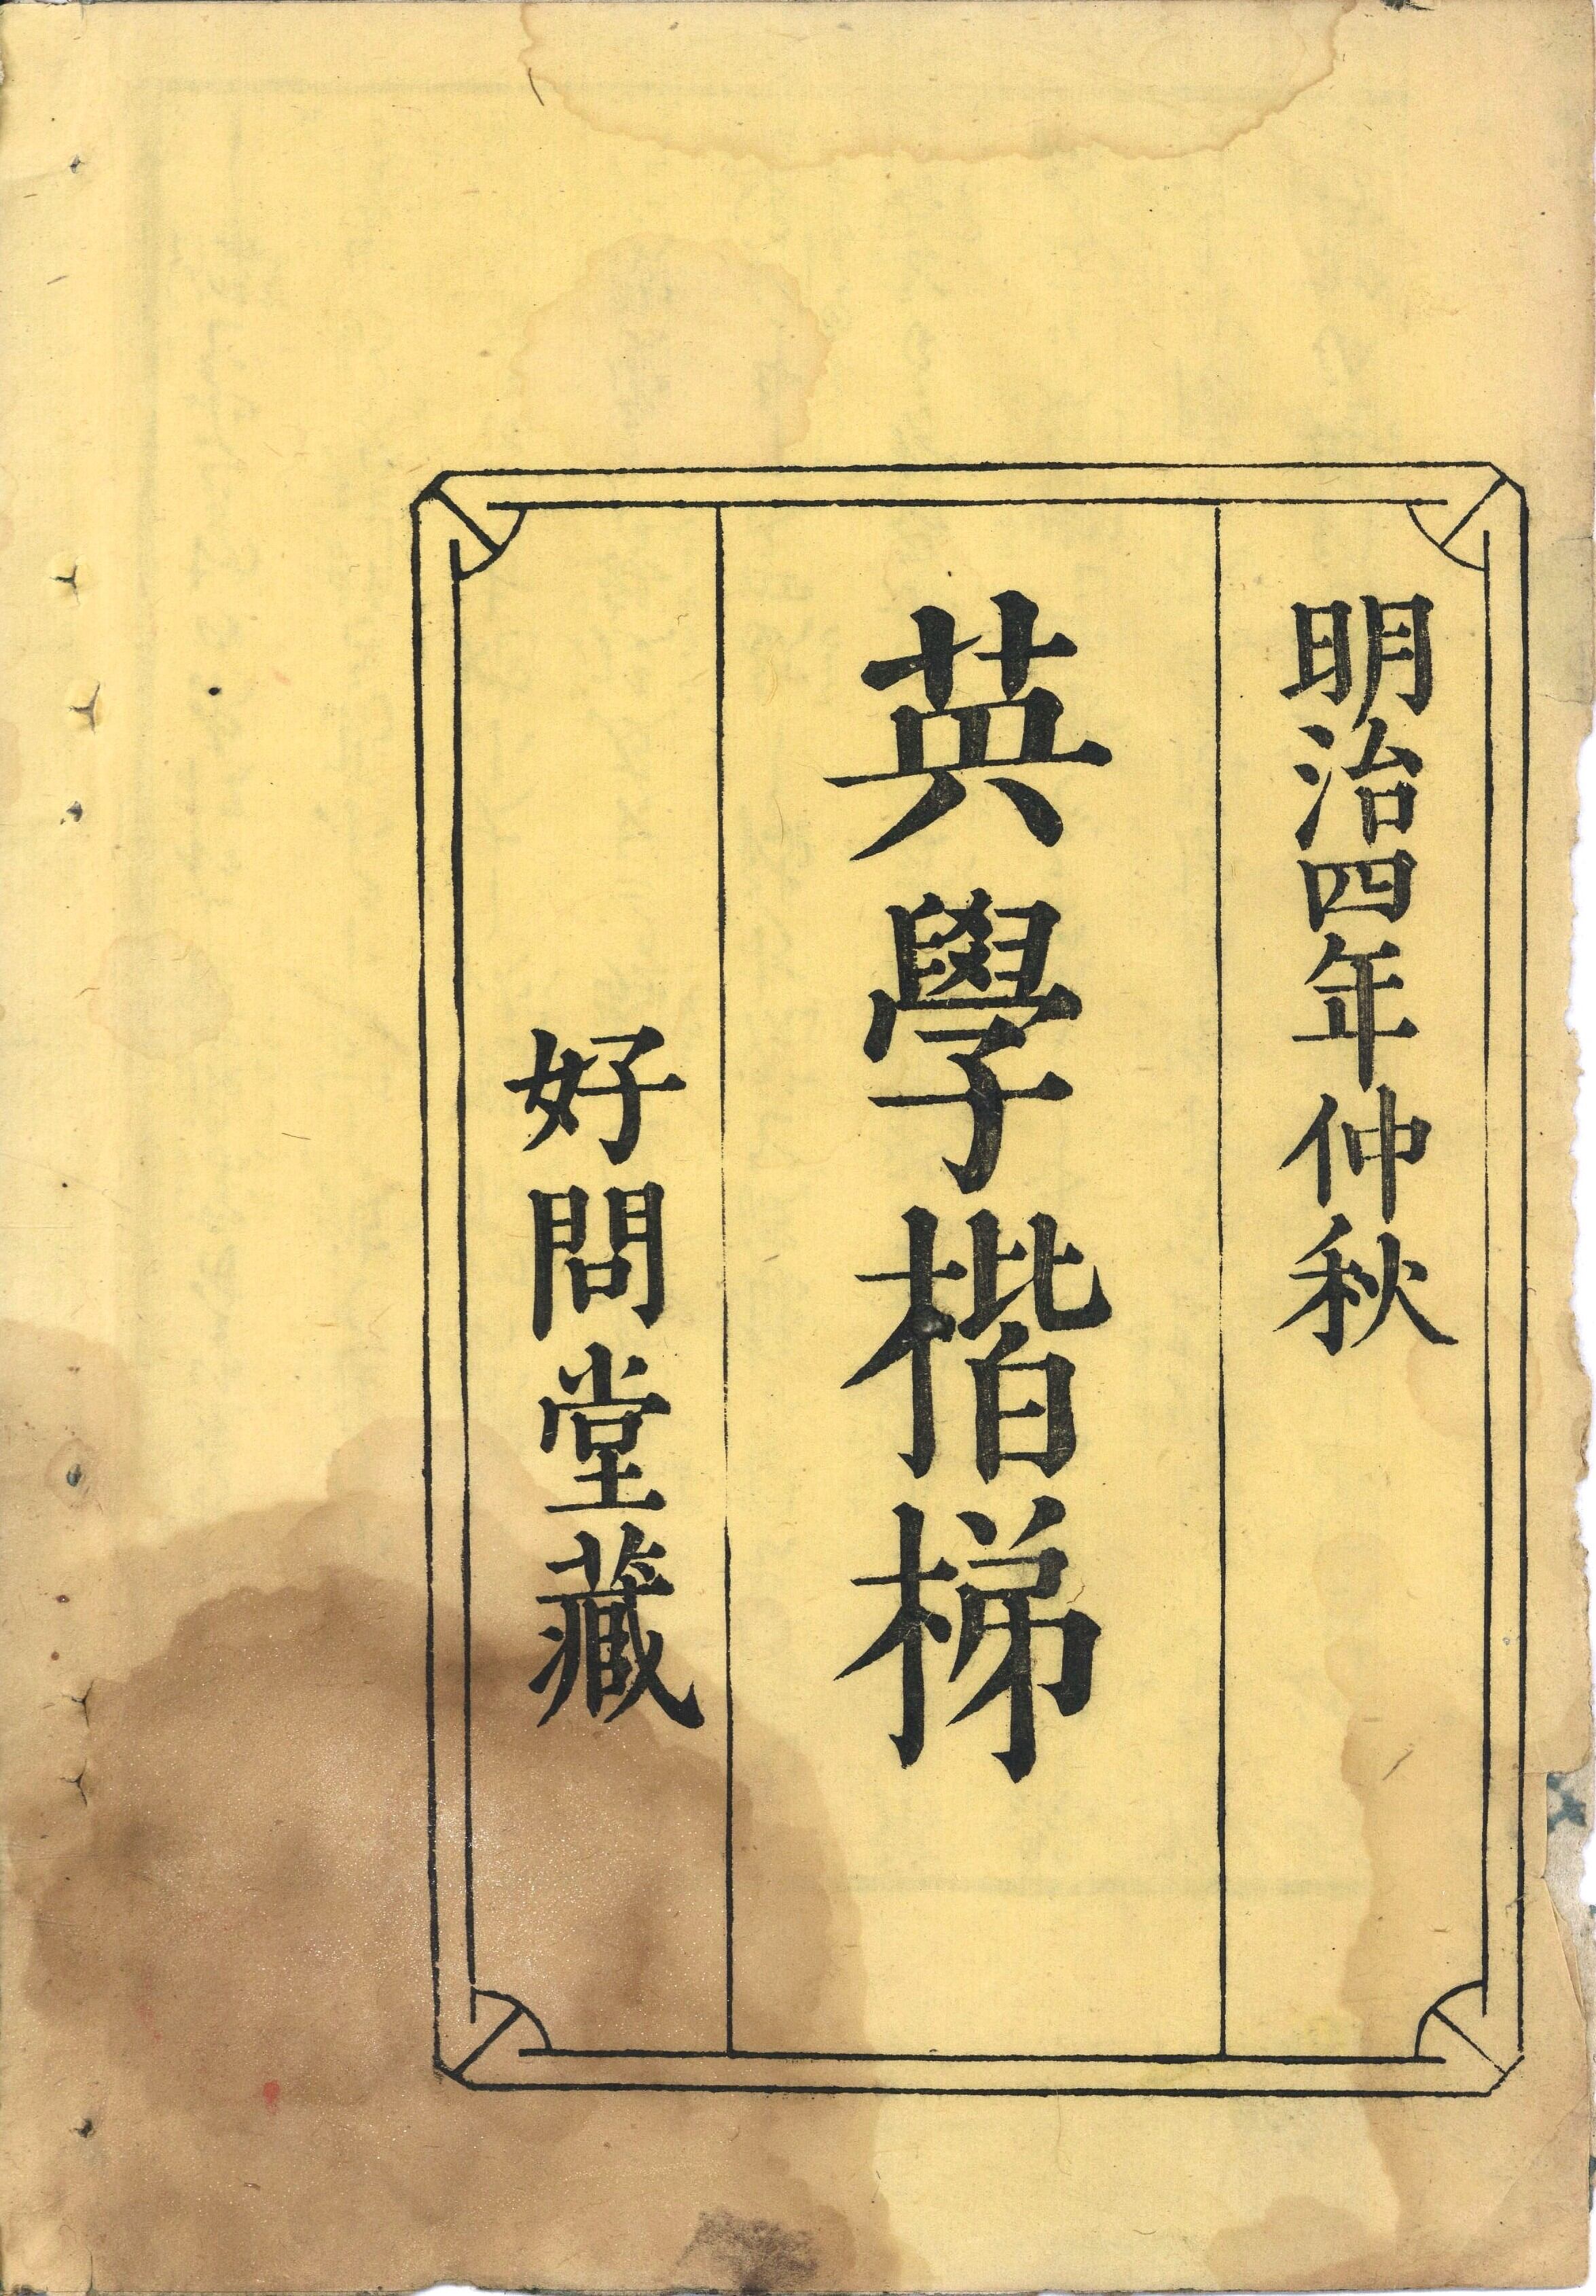 明治四年仲秋
英學楷梯
好問堂藏